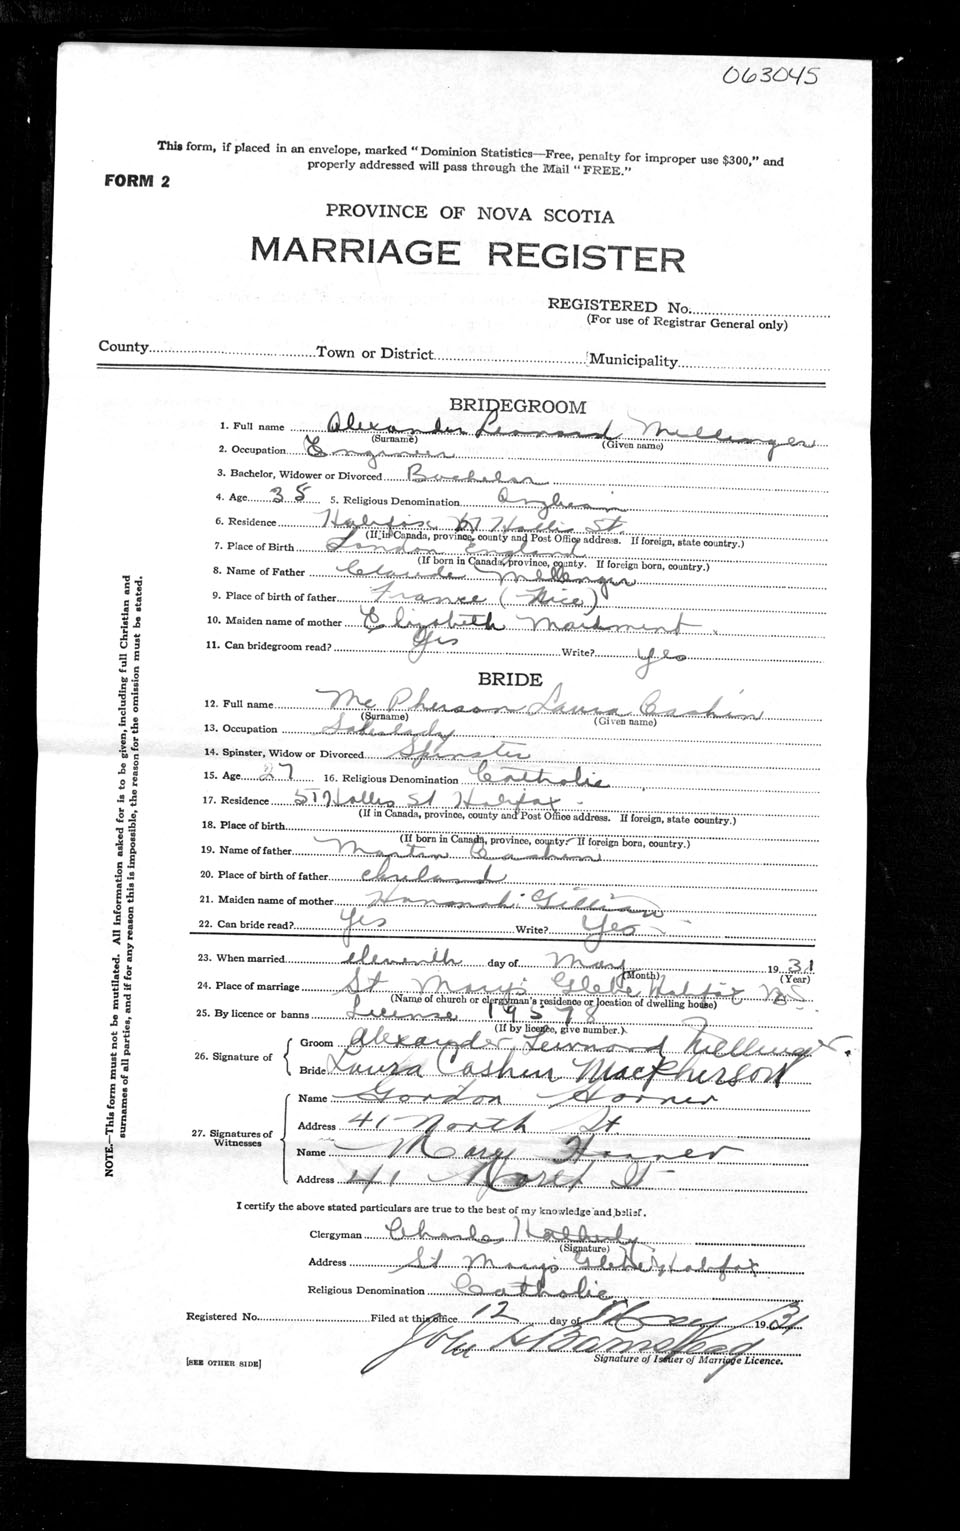 063045
This form, if placed in an envelope, marked "Dominion Statistics—Free, penalty for improper use $300," and
properly addressed will pass through the Mail "FREE."
FORM 2
PROVINCE OF NOVA SCOTIA
MARRIAGE REGISTER
REGISTERED No.
(For use of Registrar General only)
County Town or District Municipality
BRIDEGROOM
1. Full name Alexander Leonard Mellinger
(Surname) (Given name)
2. Occupation Engineer
3. Bachelor, Widower or Divorced Bachelor
4. Age 35 5. Religious Denomination
6. Residence Halifax 57 Hollis St.
(If in Canada, province, county and Post Office address. If foreign, state country.)
7. Place of Birth London England
(If born in Canada, province, county. If foreign born, country.)
8. Name of Father Claude Mellinger
9. Place of birth of father France (Nice)
10. Maiden name of mother Elizabeth
11. Can bridegroom read? Yes Write? Yes
BRIDE
12. Full name McPherson Laura Cashin
(Surname) (Given name)
13. Occupation Saleslady
14. Spinster, Widow or Divorced Spinster
15. Age 27 16. Religious Denomination Catholic
17. Residence 57 Hollis St Halifax
(If in Canada, province, county and Post Office address. If foreign, state country.)
18. Place of birth
(If born in Canada, province, county. If foreign born, country.)
19. Name of father Martin Cashin
20. Place of birth of father
21. Maiden name of mother Hannah
22. Can bride read? Yes Write? Yes
23. When married eleventh day of May 1931
(Month) (Year)
24. Place of marriage St Mary's Glebe Halifax NS
(Name of church or clergyman's residence or location of dwelling house)
25. By licence or banns License 19578
(If by licence, give number.)
26. Signature of Groom Alexander Leonard Mellinger.
Bride Laura Cashin MacPherson
27. Signatures of Witnesses
Name Gordon Horner
Address 41 North St
Name Mary Horner
Address 41 North St
I certify the above stated particulars are true to the best of my knowledge and belief.
Clergyman Charles
(Signature)
Address St Mary's Glebe Halifax
Religious Denomination Catholic
Registered No. Filed at this office 12 day of May 1931
John H Barnstead
Signature of Issuer of Marriage Licence.
[SEE OTHER SIDE]
NOTE.—This form must not be mutilated. All information asked for is to be given, including full Christian and
surnames of all parties, and if for any reason this is impossible, the reason for the omission must be stated.